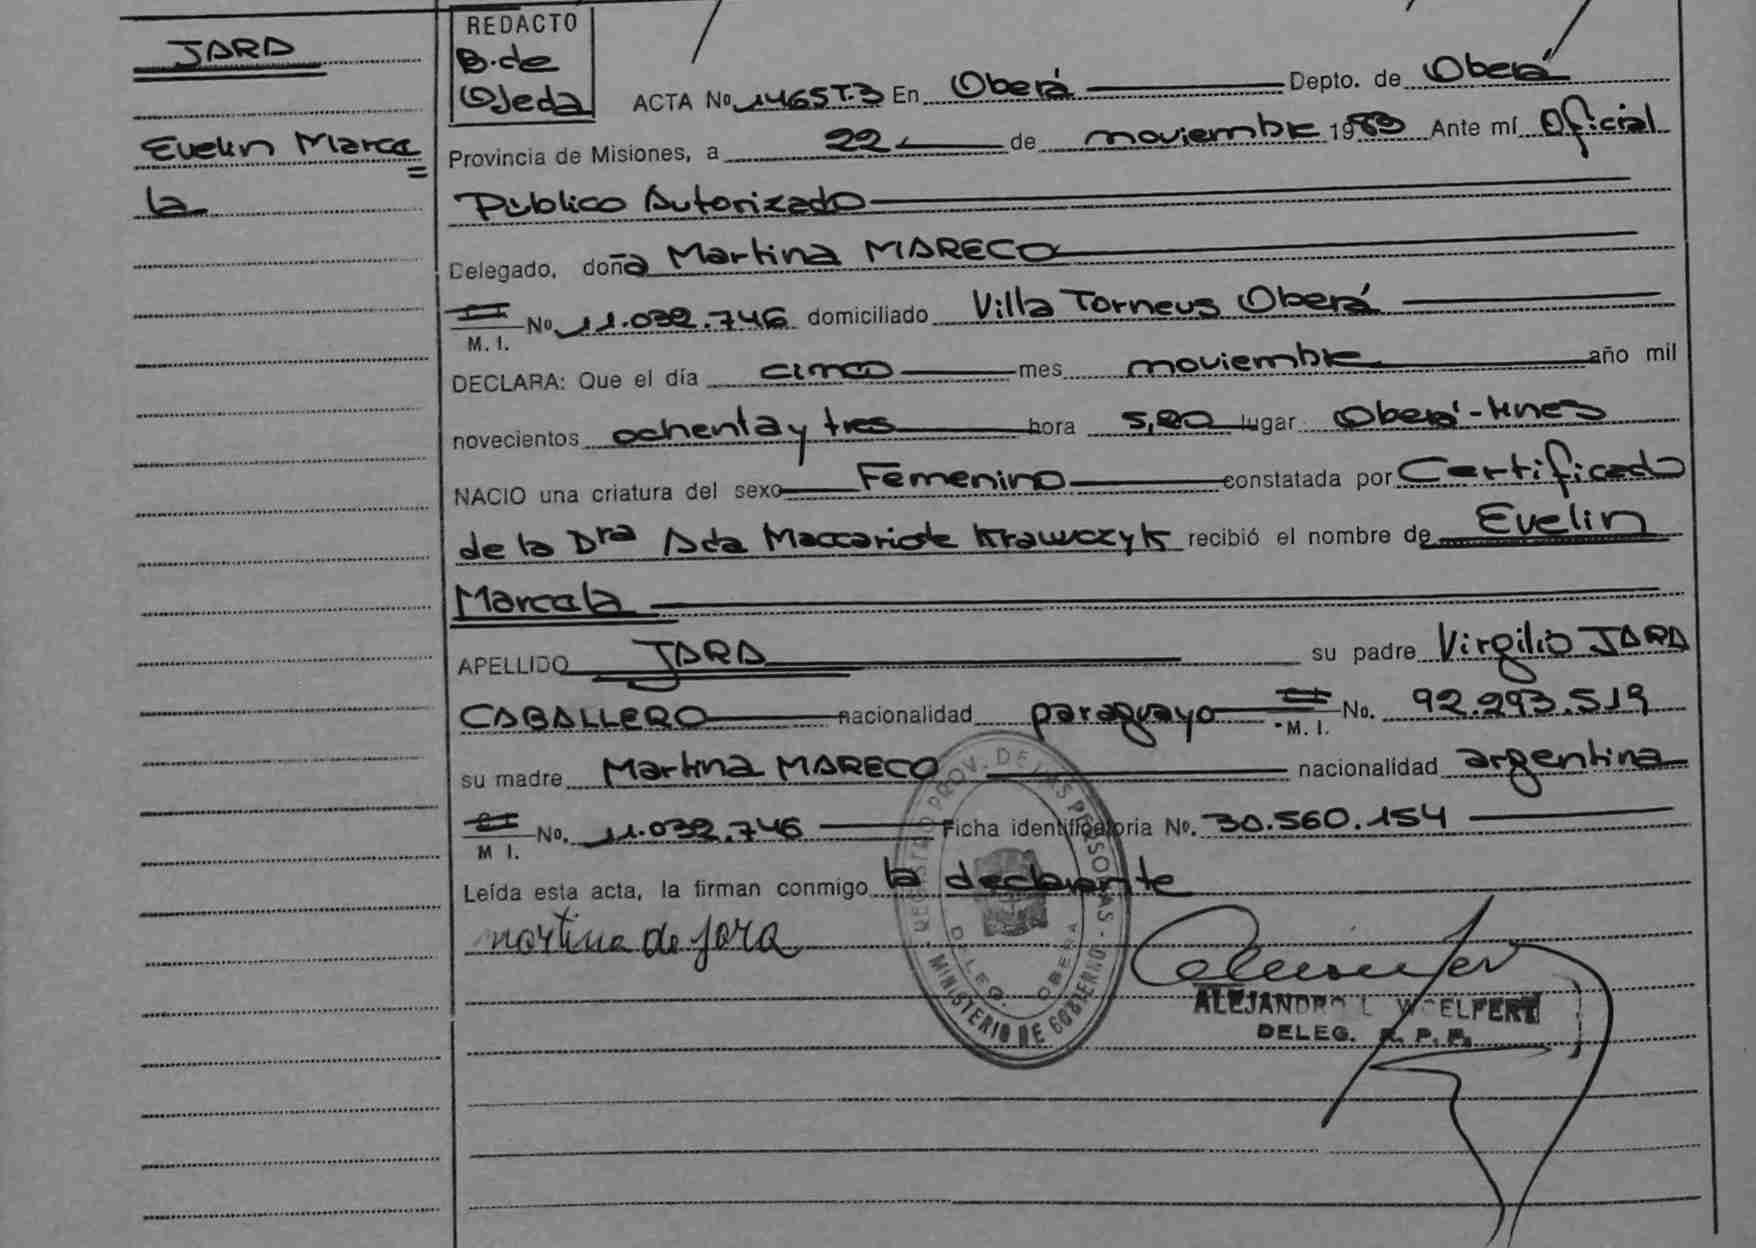 JARA
Evelin Marce=
la
REDACTO
B. de
Ojeda
ACTA No 1465T.3 En Oberá Depto. de Oberá
Provincia de Misiones, a 22 de noviembre 1983 Ante mí Oficial
Público Autorizado
Delegado, doña Martina MARECO
CI
M. I. No 11.032.746 domiciliado Villa Torneus Oberá
DECLARA: Que el día cinco mes noviembre año mil
novecientos ochenta y tres hora 5,20 lugar Oberá-Mnes
NACIO una criatura del sexo Femenino constatada por Certificado
de la Dra Ada Krawczyk recibió el nombre de Evelin
Marcela
APELLIDO JARA su padre Virgilio JARA
CABALLERO nacionalidad paraguayo CI M. I. No. 92.293.519
su madre Martina MARECO nacionalidad argentina
CI
M I. No. 11.032.746 Ficha identificatoria No. 30.560.154
Leída esta acta, la firman conmigo la declarante
martina de Jara
REGISTRO PROV. DE LAS PERSONAS - MINISTERIO DE GOBIERNO -
DELEG. OBERA
ALEJANDRO L WOELFERT
DELEG. R. P. P.